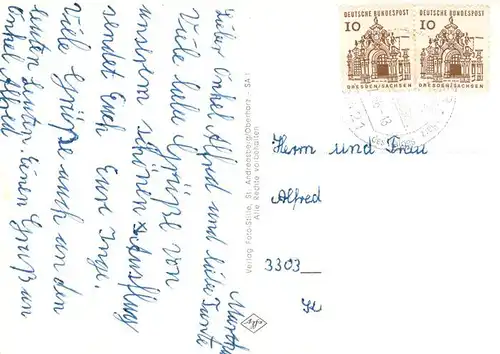 Lieber Onkel Alfred und liebe Tante
Martha
Viele liebe Grüße von
unserem schönen Ausflug
sendet Euch Eure Inge.
Viele Grüße auch an den
Onkel Alfred
Verlag Foto-Stille, St. Andreasberg/Oberharz - SA 1
Alle Rechte vorbehalten
DEUTSCHE BUNDESPOST
10
DRESDEN/SACHSEN
DEUTSCHE BUNDESPOST
10
DRESDEN/SACHSEN
Herrn und Frau
Alfred
3303